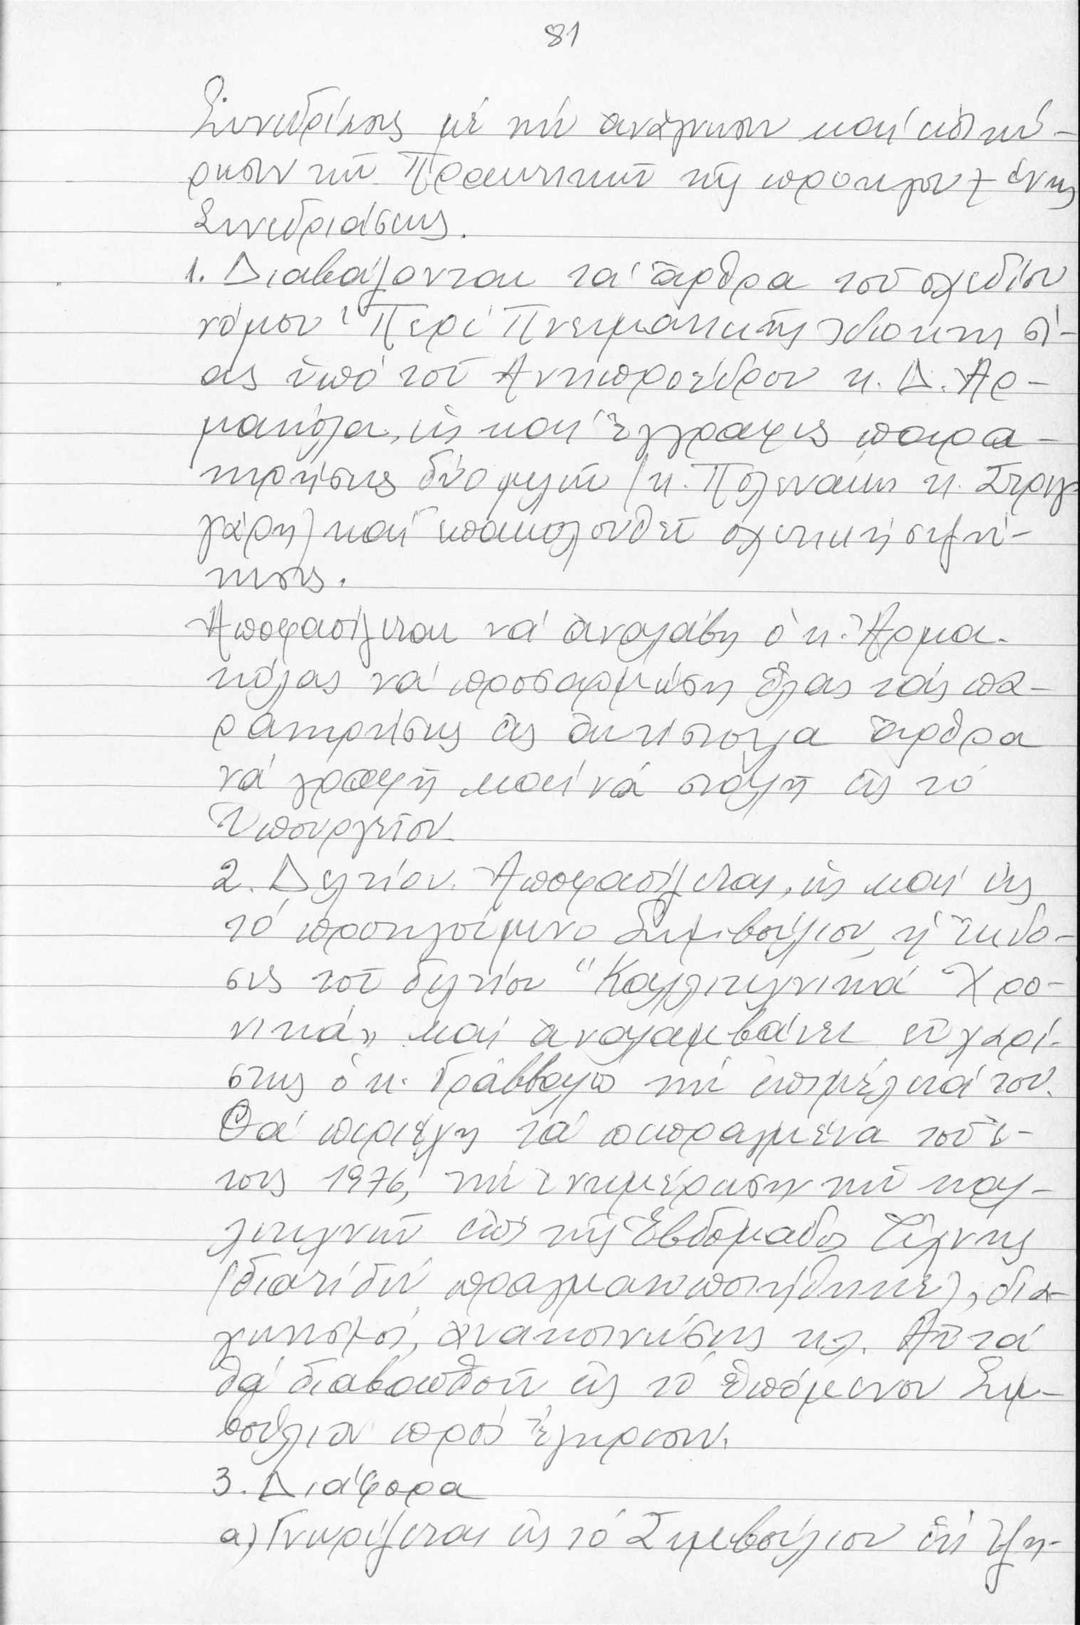 81
Συνεδρίασις μέ τήν ἀνάγνωσιν καί ἐπικύ-
ρωσιν τῶν Πρακτικῶν τῆς προηγουμένης
Συνεδριάσεως.
1. Διαβάζονται τά ἄρθρα τοῦ σχεδίου
νόμου "Περί Πνευματικῆς Ἰδιοκτησί-
ας ὑπό τοῦ Ἀντιπροέδρου κ. Δ. Ἀρ-
μακόλα, ὡς καί ἔγγραφες παρα-
τηρήσεις δύο μελῶν (κ. Πολενάκη κ.
γάρη) καί ἐπακολουθεῖ σχετική συζή-
τησις.
Ἀποφασίζεται νά ἀναλάβη ὁ κ. Ἀρμα-
κόλας νά προσαρμώση ὅλας τάς πα-
ρατηρήσεις εἰς ἀντίστοιχα ἄρθρα
νά γραφῆ καί νά σταλῆ εἰς τό
Ὑπουργεῖον
2. Δελτίον. Ἀποφασίζεται, ὡς καί εἰς
τό προηγούμενο Συμβούλιον, ἡ ἔκδο-
σις τοῦ δελτίου "Καλλιτεχνικά Χρο-
νικά" καί ἀναλαμβάνει εὐχαρί-
στως ὁ κ. Γράββαλος τήν ἐπιμέλειά του.
Θά περιέχη τά πεπραγμένα τοῦ ἔ-
τους 1976, τήν ἐνημέρωσιν τῶν καλ-
λιτεχνῶν ἐπί τῆς Ἑβδομάδος Τέχνης
(διατί δέν πραγματοποιήθηκε), δια-
γωνισμοί, ἀνακοινώσεις κλ. Αὐτά
θά διαβασθοῦν εἰς τό ἑπόμενον Συμ-
βούλιον πρός ἔγκρισιν.
3. Διάφορα
α) Γνωρίζεται εἰς τό Συμβούλιον ὅτι